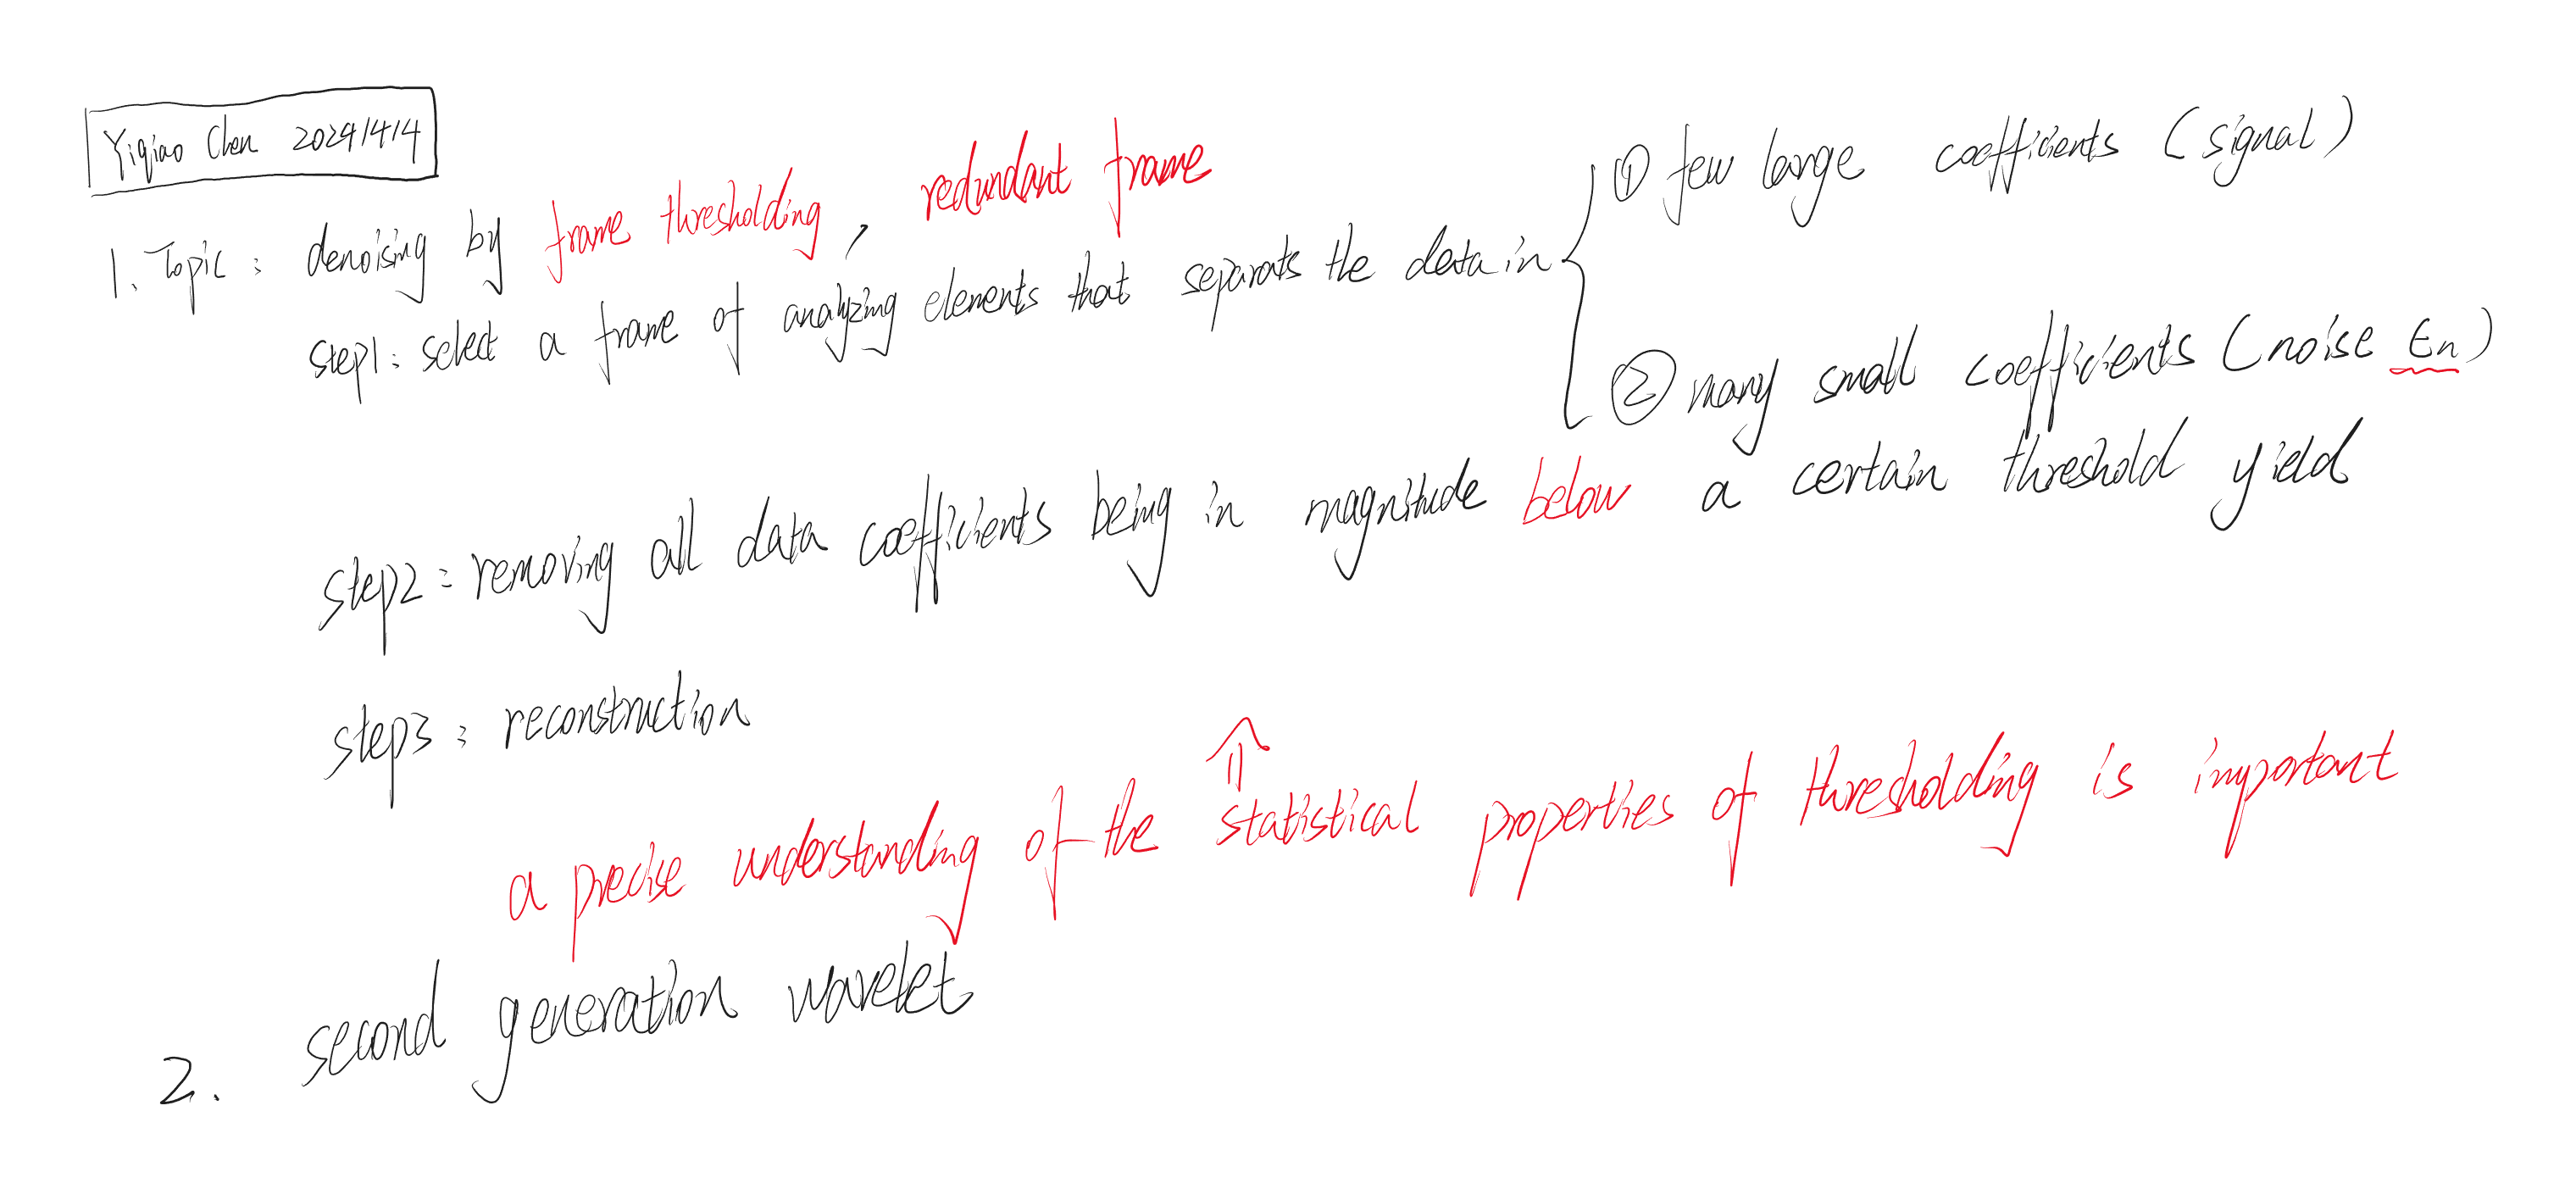 Yiqiao Chen 2024/4/4
1. Topic: denoising by frame thresholding, redundant frame
step1: select a frame of analyzing elements that separats the data in
① few large coefficients (signal)
② many small coefficients (noise ϵn)
step2: removing all data coefficients being in magnitude below a certain threshold yield
step3: reconstruction
⇑
a precise understanding of the statistical properties of thresholding is important
2. second generation wavelet